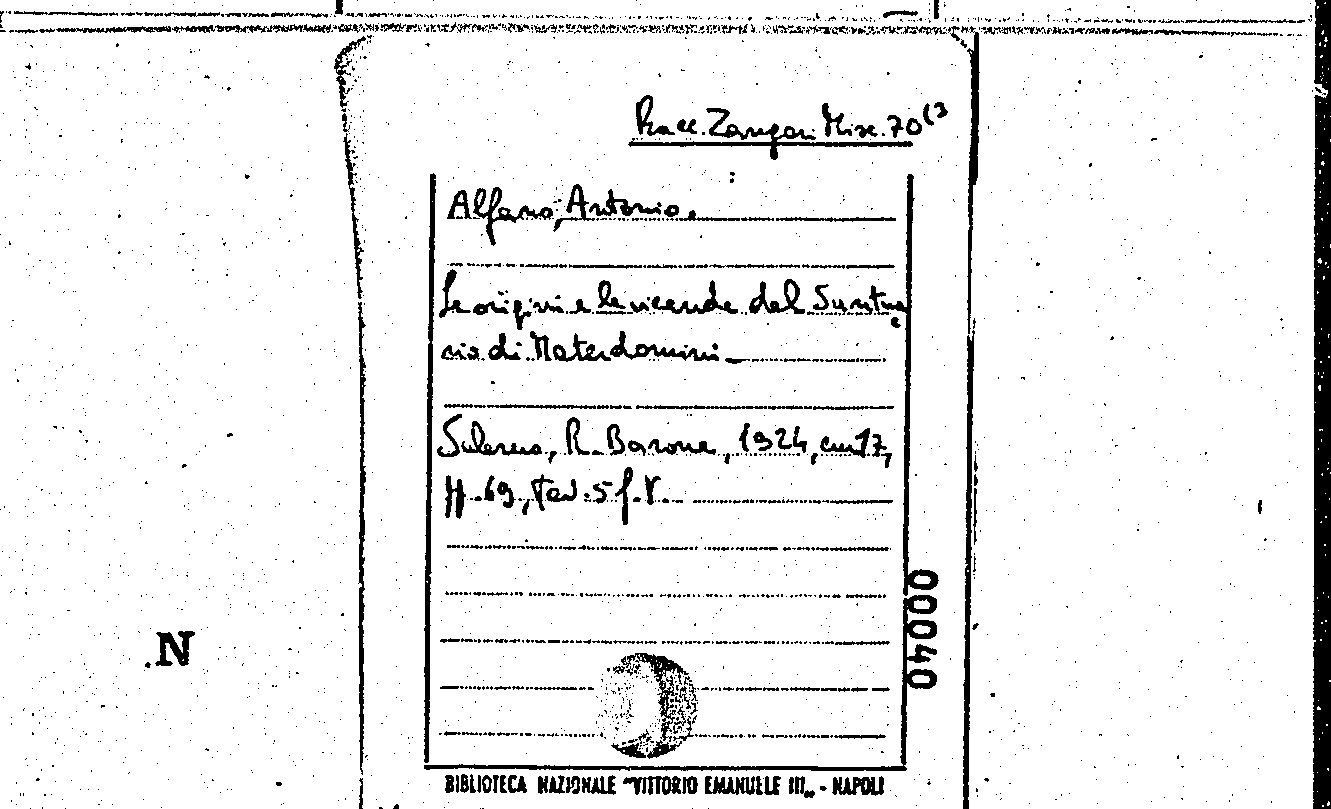 Racc. Zangari Misc. 70 (3
Alfano, Antonio.
Le origini e le vicende del Santua
rio di Materdomini_
Salerno, R. Barone, 1924, cm 17,
pp. 69, tav. 5 f.t.
00040
N
BIBLIOTECA NAZIONALE "VITTORIO EMANUELE III„ - NAPOLI